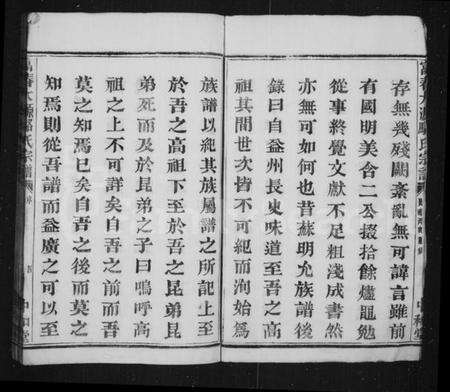 存無幾殘闕紊亂無可諱言雖前
有國明美含二公掇拾餘燼黽勉
從事終覺文獻不足粗淺成書然
亦無可如何也昔蘇明允族譜後
錄曰自益州長史味道至吾之高
祖其間世次皆不可紀而洵始為
族譜以紀其族屬譜之所記上至
於吾之高祖下至於吾之昆弟昆
弟死而及於昆弟之子曰嗚呼高
祖之上不可詳矣自吾之前而吾
莫之知焉已矣自吾之後而莫之
知焉則從吾譜而益廣之可以至